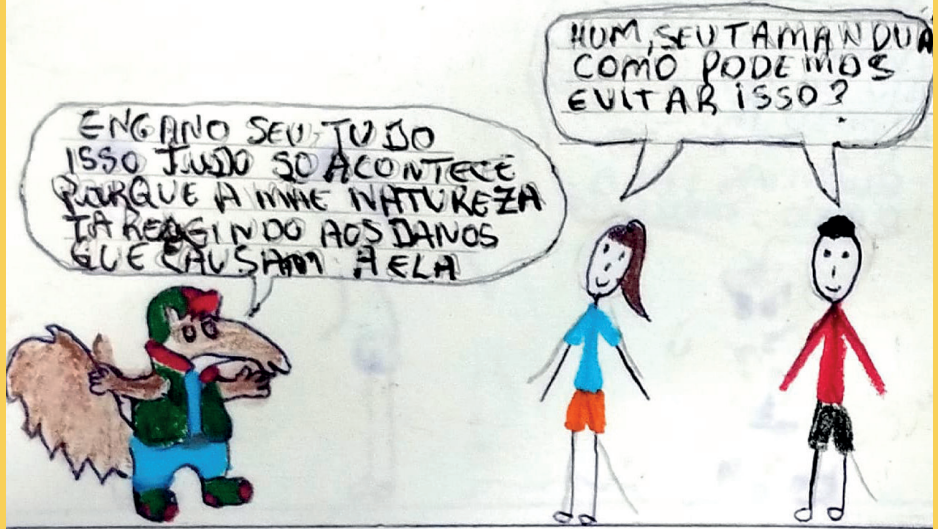 ENGANO SEU, TUDO
ISSO TUDO SO ACONTECE
PORQUE A MAE NATUREZA
TA REAGINDO AOS DANOS
QUE CAUSAM A ELA
HUM, SEU TAMANDUÁ
COMO PODEMOS
EVITAR ISSO?